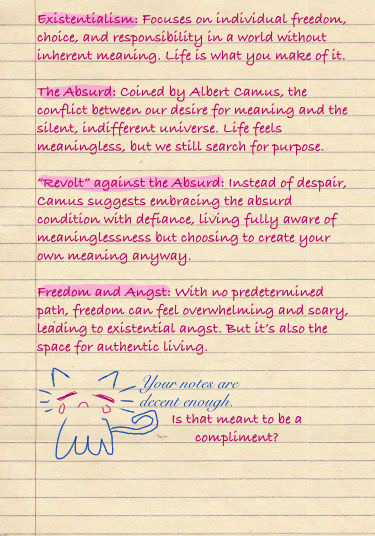 Existentialism: Focuses on individual freedom,
choice, and responsibility in a world without
inherent meaning. Life is what you make of it.
The Absurd: Coined by Albert Camus, the
conflict between our desire for meaning and the
silent, indifferent universe. Life feels
meaningless, but we still search for purpose.
"Revolt" against the Absurd: Instead of despair,
Camus suggests embracing the absurd
condition with defiance, living fully aware of
meaninglessness but choosing to create your
own meaning anyway.
Freedom and Angst: With no predetermined
path, freedom can feel overwhelming and scary,
leading to existential angst. But it's also the
space for authentic living.
Your notes are
decent enough.
Is that meant to be a
compliment?